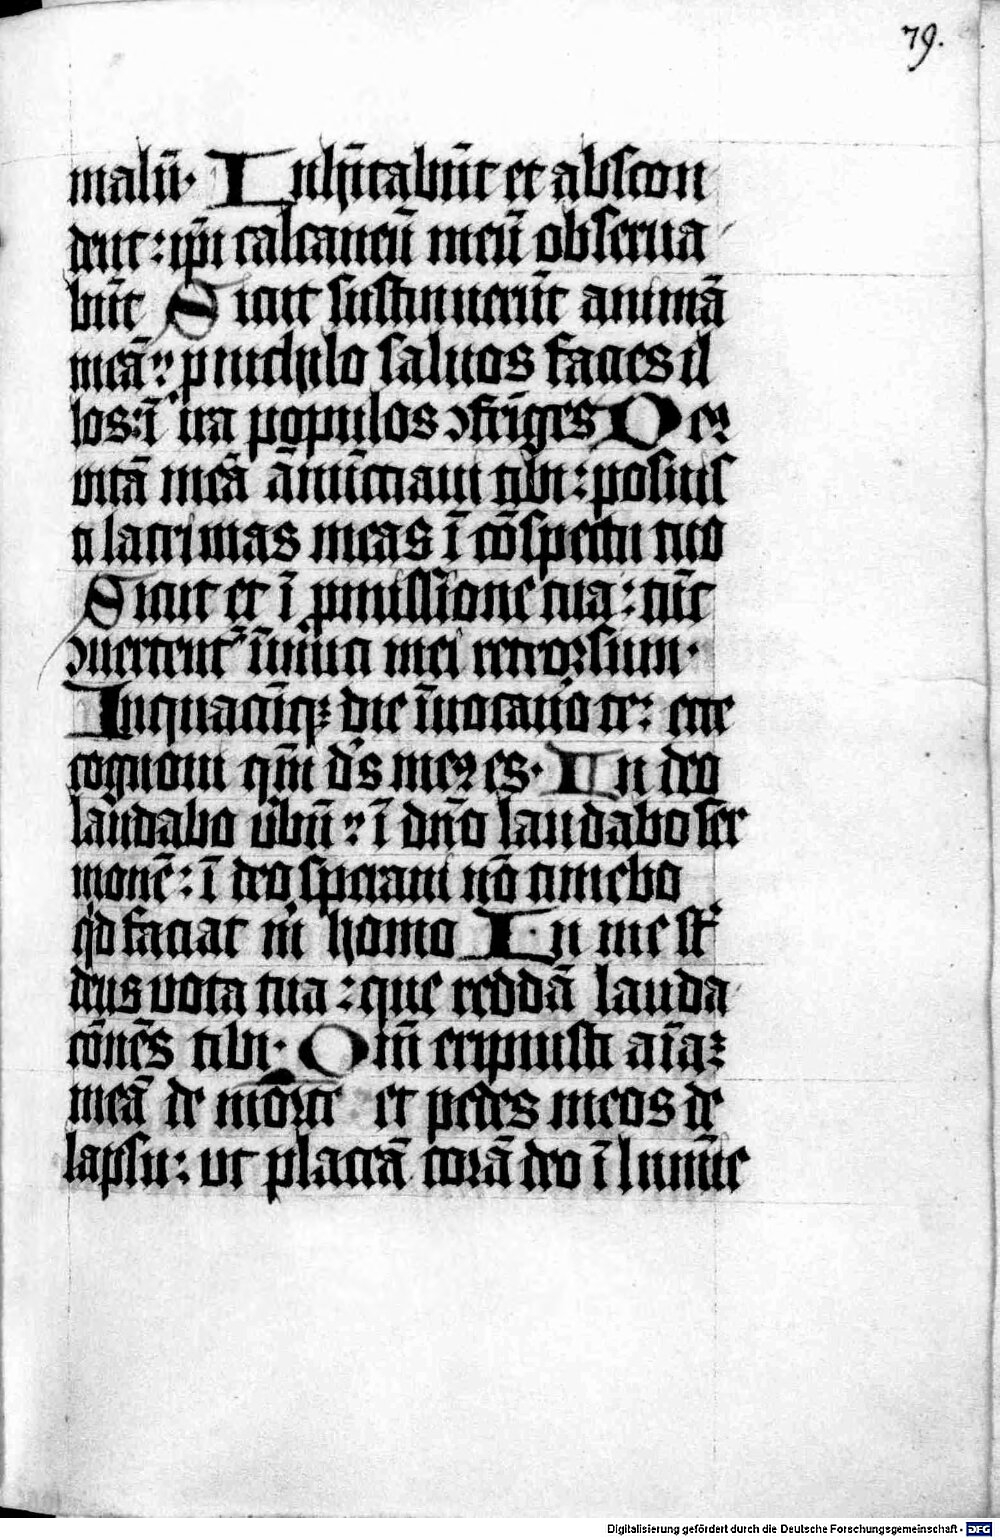 79.
malū· Inhītabūt et abscon
dent: ip̄i calcaneū meū obserua
būt Sicut sustinuerūt animā
meā: p nichilo saluos facies il
los: ī ira populos ɔfrīges Deꝰ
vitā meā ānūctiaui tibi: posuis
ti lacrimas meas ī cōspectu tuo
Sicut et ī pmissione tua: tūc
ɔuertent᷑ īimici mei retrorsum·
In quacūq; die īuocauō te: ecce
cognoui qm̄ ds̄ meꝰ es· In deo
laudabo ūbū: ī dn̄o laudabo ser
monē: ī deo speraui nō timebo
qd faciat m̄ homo In me st̄
deus vota tua: que reddā lauda
cōnēs tibi· Qm̄ eripuisti aīaȝ
meā de morte et pedes meos de
lapsu: ut placeā corā deo ī lumīe
Digitalisierung gefördert durch die Deutsche Forschungsgemeinschaft - DFG